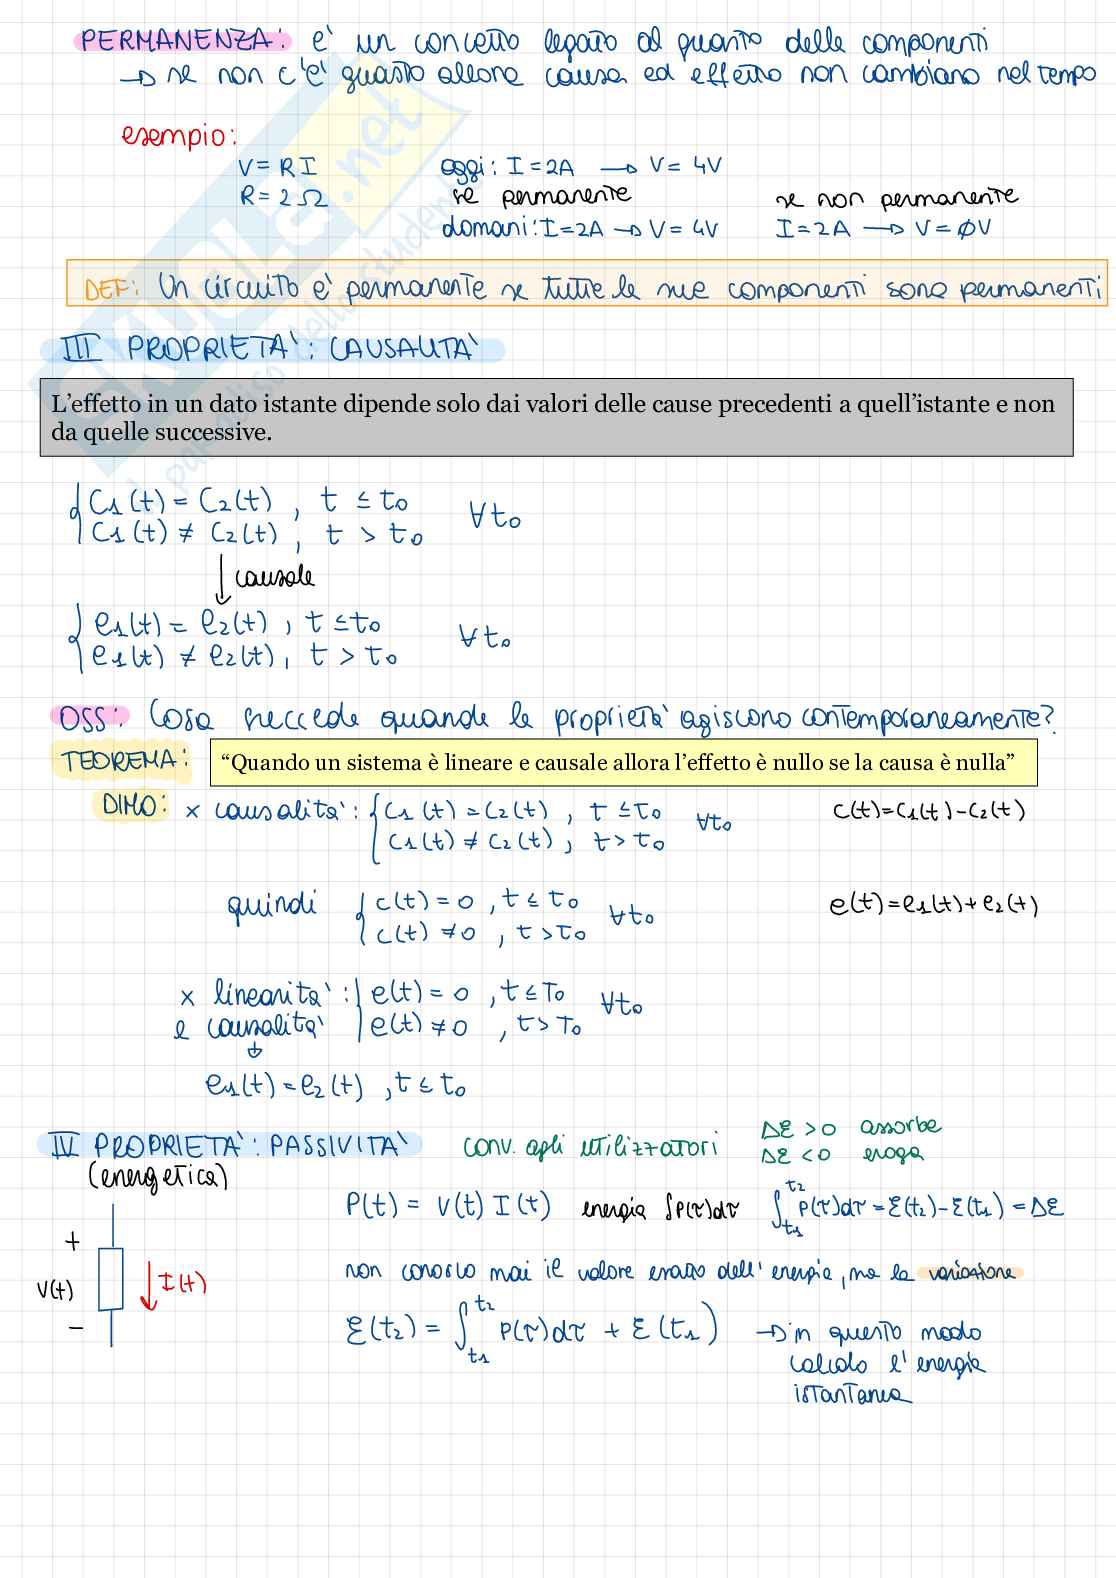 PERMANENZA: e' un concetto legato al guasto delle componenti
→ se non c'e' guasto allora causa ed effetto non cambiano nel tempo
esempio:
V = R I oggi: I = 2A → V = 4V
R = 2 Ω se permanente se non permanente
domani: I = 2A → V = 4V I = 2A → V = ØV
DEF: Un circuito e' permanente se tutte le sue componenti sono permanenti
III PROPRIETA': CAUSALITA'
L'effetto in un dato istante dipende solo dai valori delle cause precedenti a quell'istante e non
da quelle successive.
{ C1(t) = C2(t) , t ≤ t0 ∀t0
C1(t) ≠ C2(t) , t > t0
↓ causale
{ e1(t) = e2(t) , t ≤ t0 ∀t0
e1(t) ≠ e2(t) , t > t0
OSS: Cosa succede quando le proprieta' agiscono contemporaneamente?
TEOREMA: “Quando un sistema è lineare e causale allora l'effetto è nullo se la causa è nulla”
DIMO: x causalita': { C1(t) = C2(t) , t ≤ t0 ∀t0 c(t) = c1(t) - c2(t)
C1(t) ≠ C2(t) , t > t0
quindi { c(t) = 0 , t ≤ t0 ∀t0 e(t) = e1(t) + e2(t)
c(t) ≠ 0 , t > t0
x linearita': { e(t) = 0 , t ≤ t0 ∀t0
e causalita' e(t) ≠ 0 , t > t0
↓
e1(t) = e2(t) , t ≤ t0
IV PROPRIETA': PASSIVITA' conv. agli utilizzatori Δℰ > 0 assorbe
Δℰ < 0 eroga
(energetica)
P(t) = V(t) I(t) energia ∫P(τ)dτ ∫t1t2 P(τ)dτ = ℰ(t2) - ℰ(t1) = Δℰ
+
V(t) I(t)
-
non conosco mai il valore esatto dell'energia, ma la variazione
ℰ(t2) = ∫t1t2 P(τ)dτ + ℰ(t1) → in questo modo
calcolo l'energia
istantanea
SKUOLA.net
il paradiso dello studente